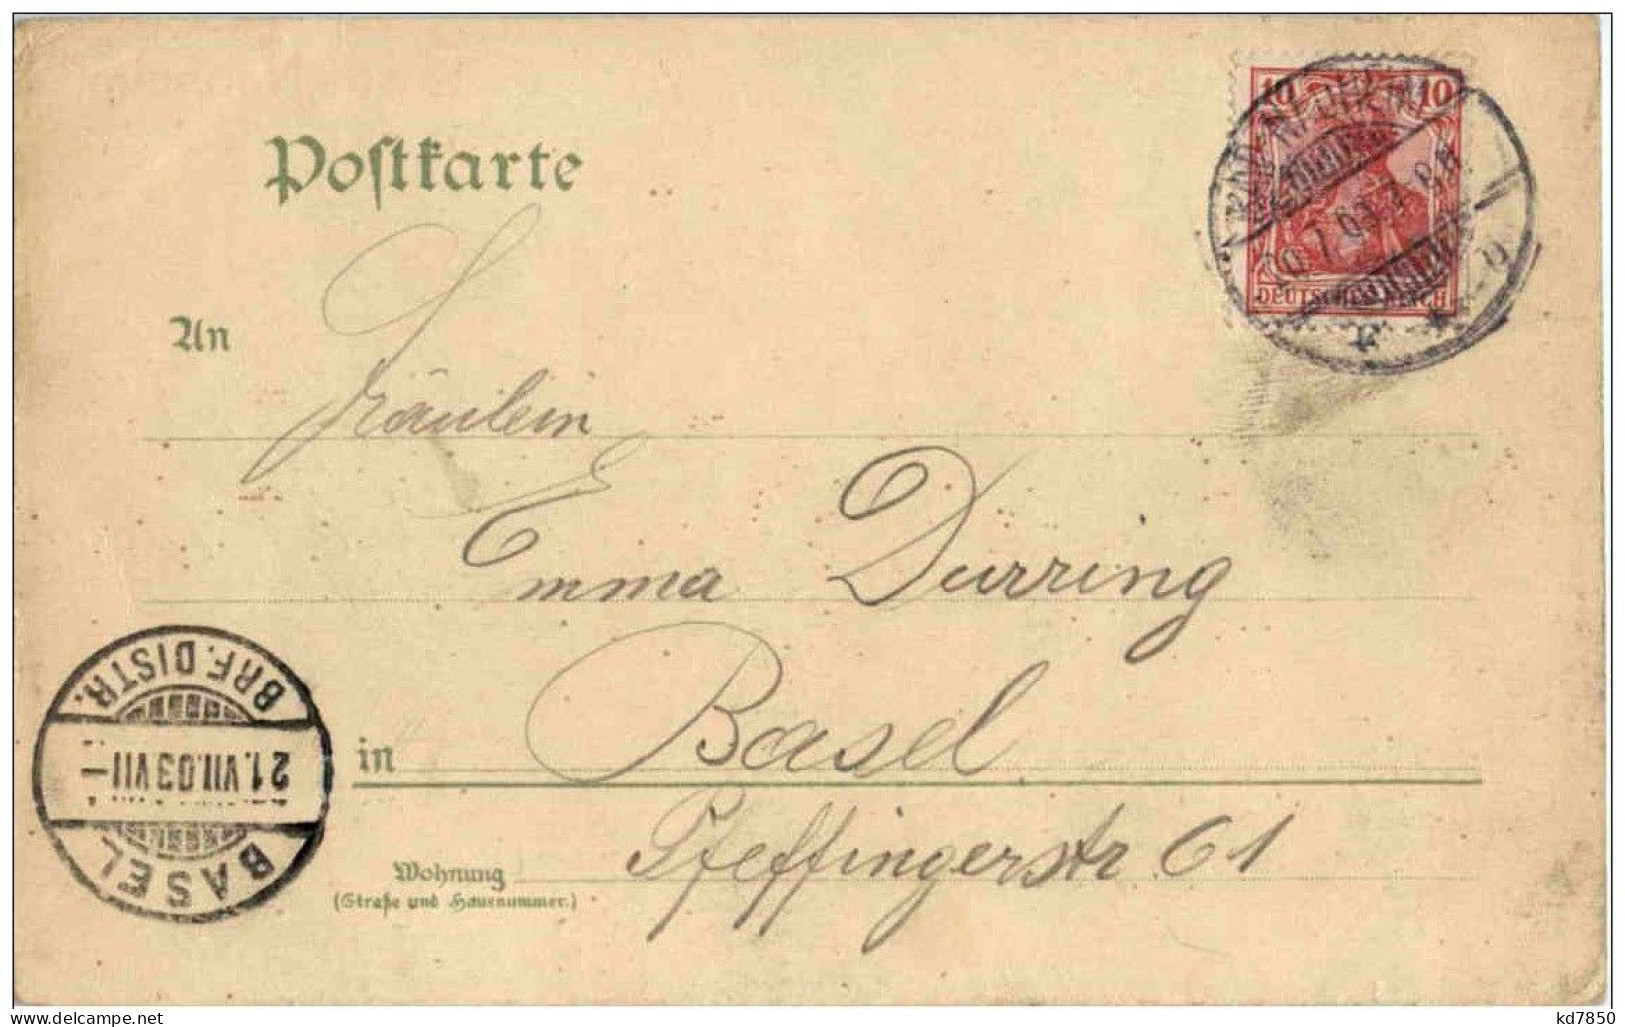 Postkarte
10 10
DEUTSCHES REICH
An
Fräulein
Emma Durring
in Basel.
Wohnung
(Straße und Hausnummer.)
Pfeffingerstr 61
BRF. DISTR.
21.VII.03 VII–
BASEL
www.delcampe.net
kd7850